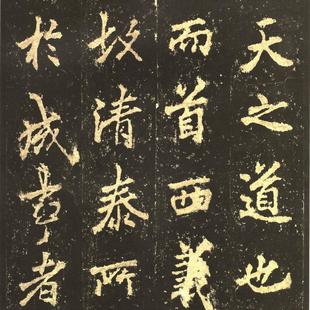 天之道也
而首西義
故清泰所
於成事者